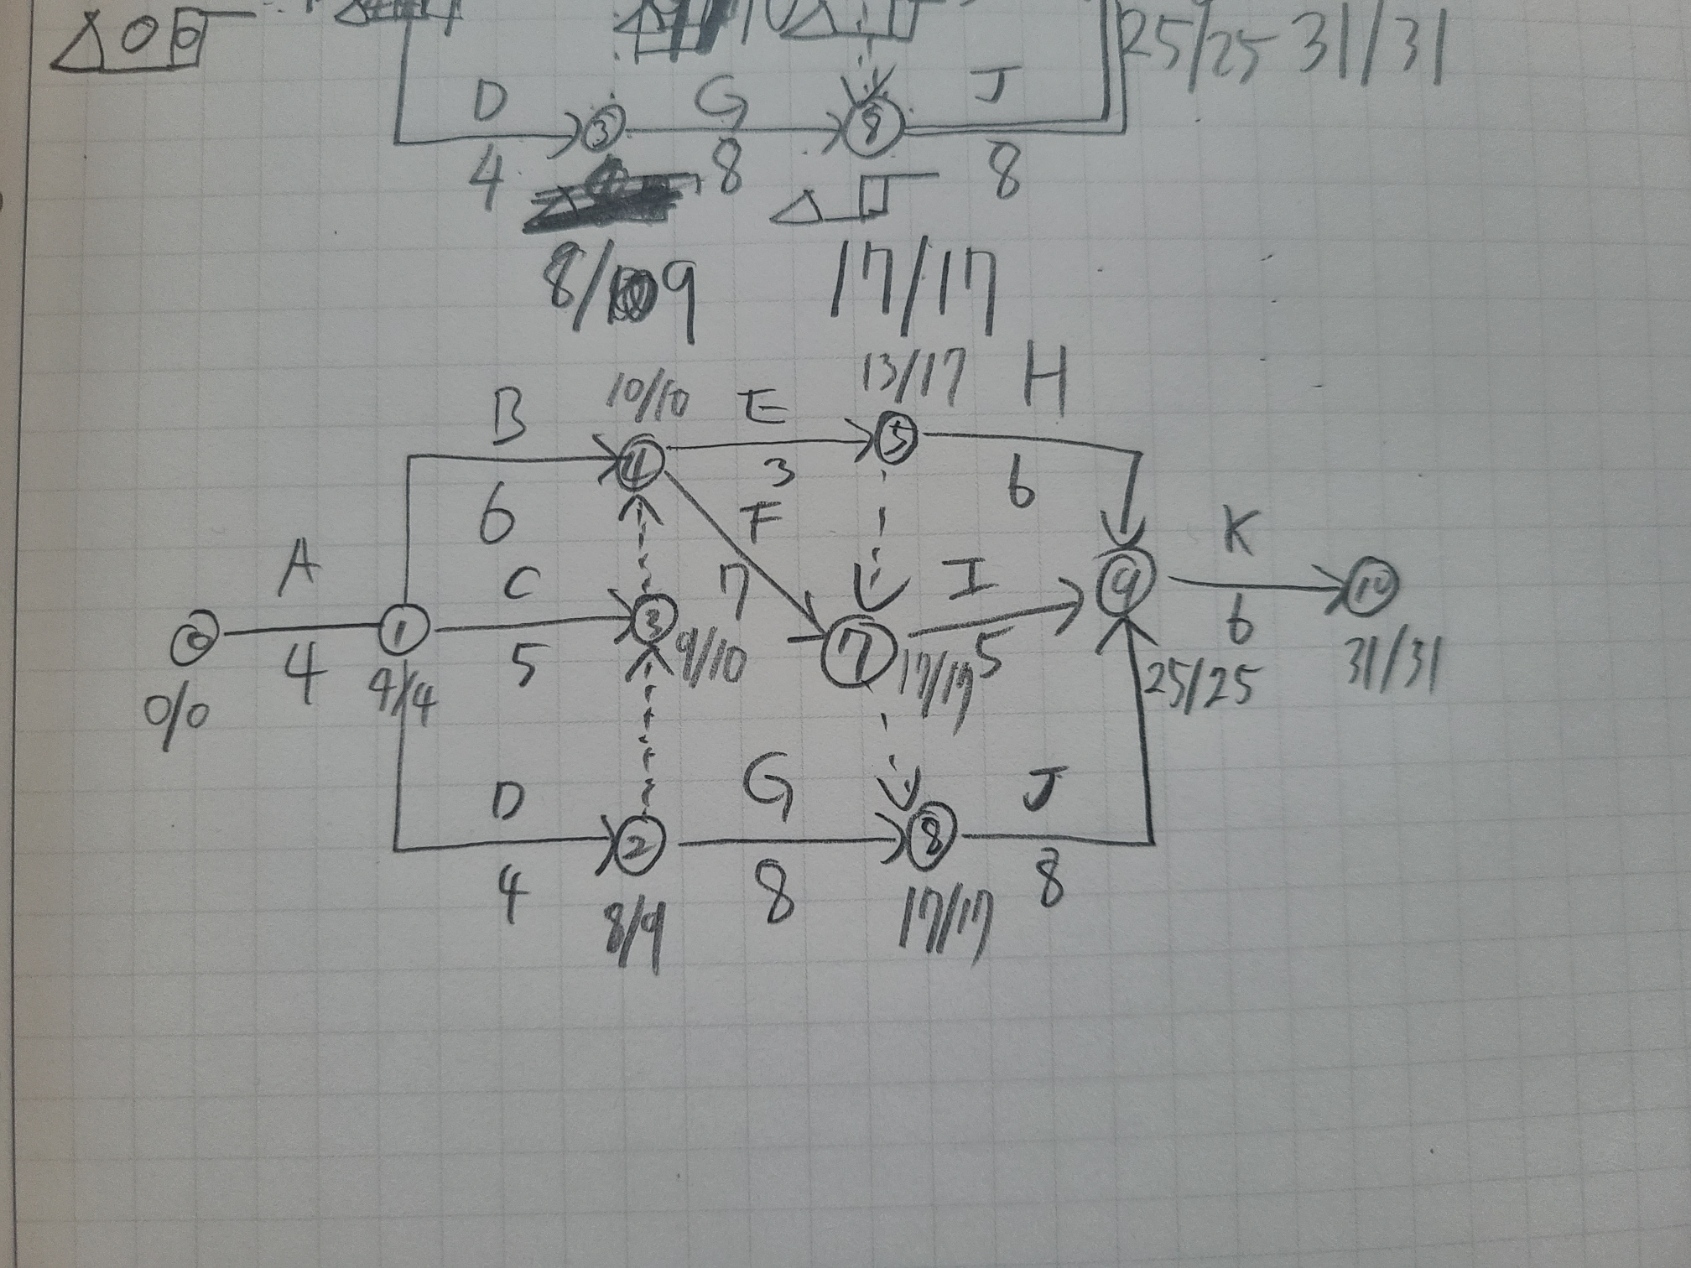 25/25 31/31
D G J
③ ⑧
4 8 8
8/9 17/17
10/10 13/17
B E H
④ ⑤
6 3 6
F
A C 7 I K
⓪ ① ③ ⑦ ⑨ ⑩
4 5 5 6
0/0 4/4 9/10 17/17 25/25 31/31
D G J
② ⑧
4 8 8
8/9 17/17